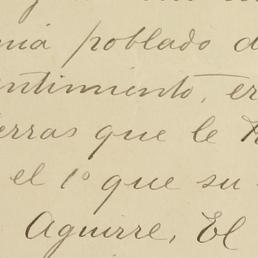 nia poblado d
entimiento, er
erras que le
el 1º que su
Aguirre, El